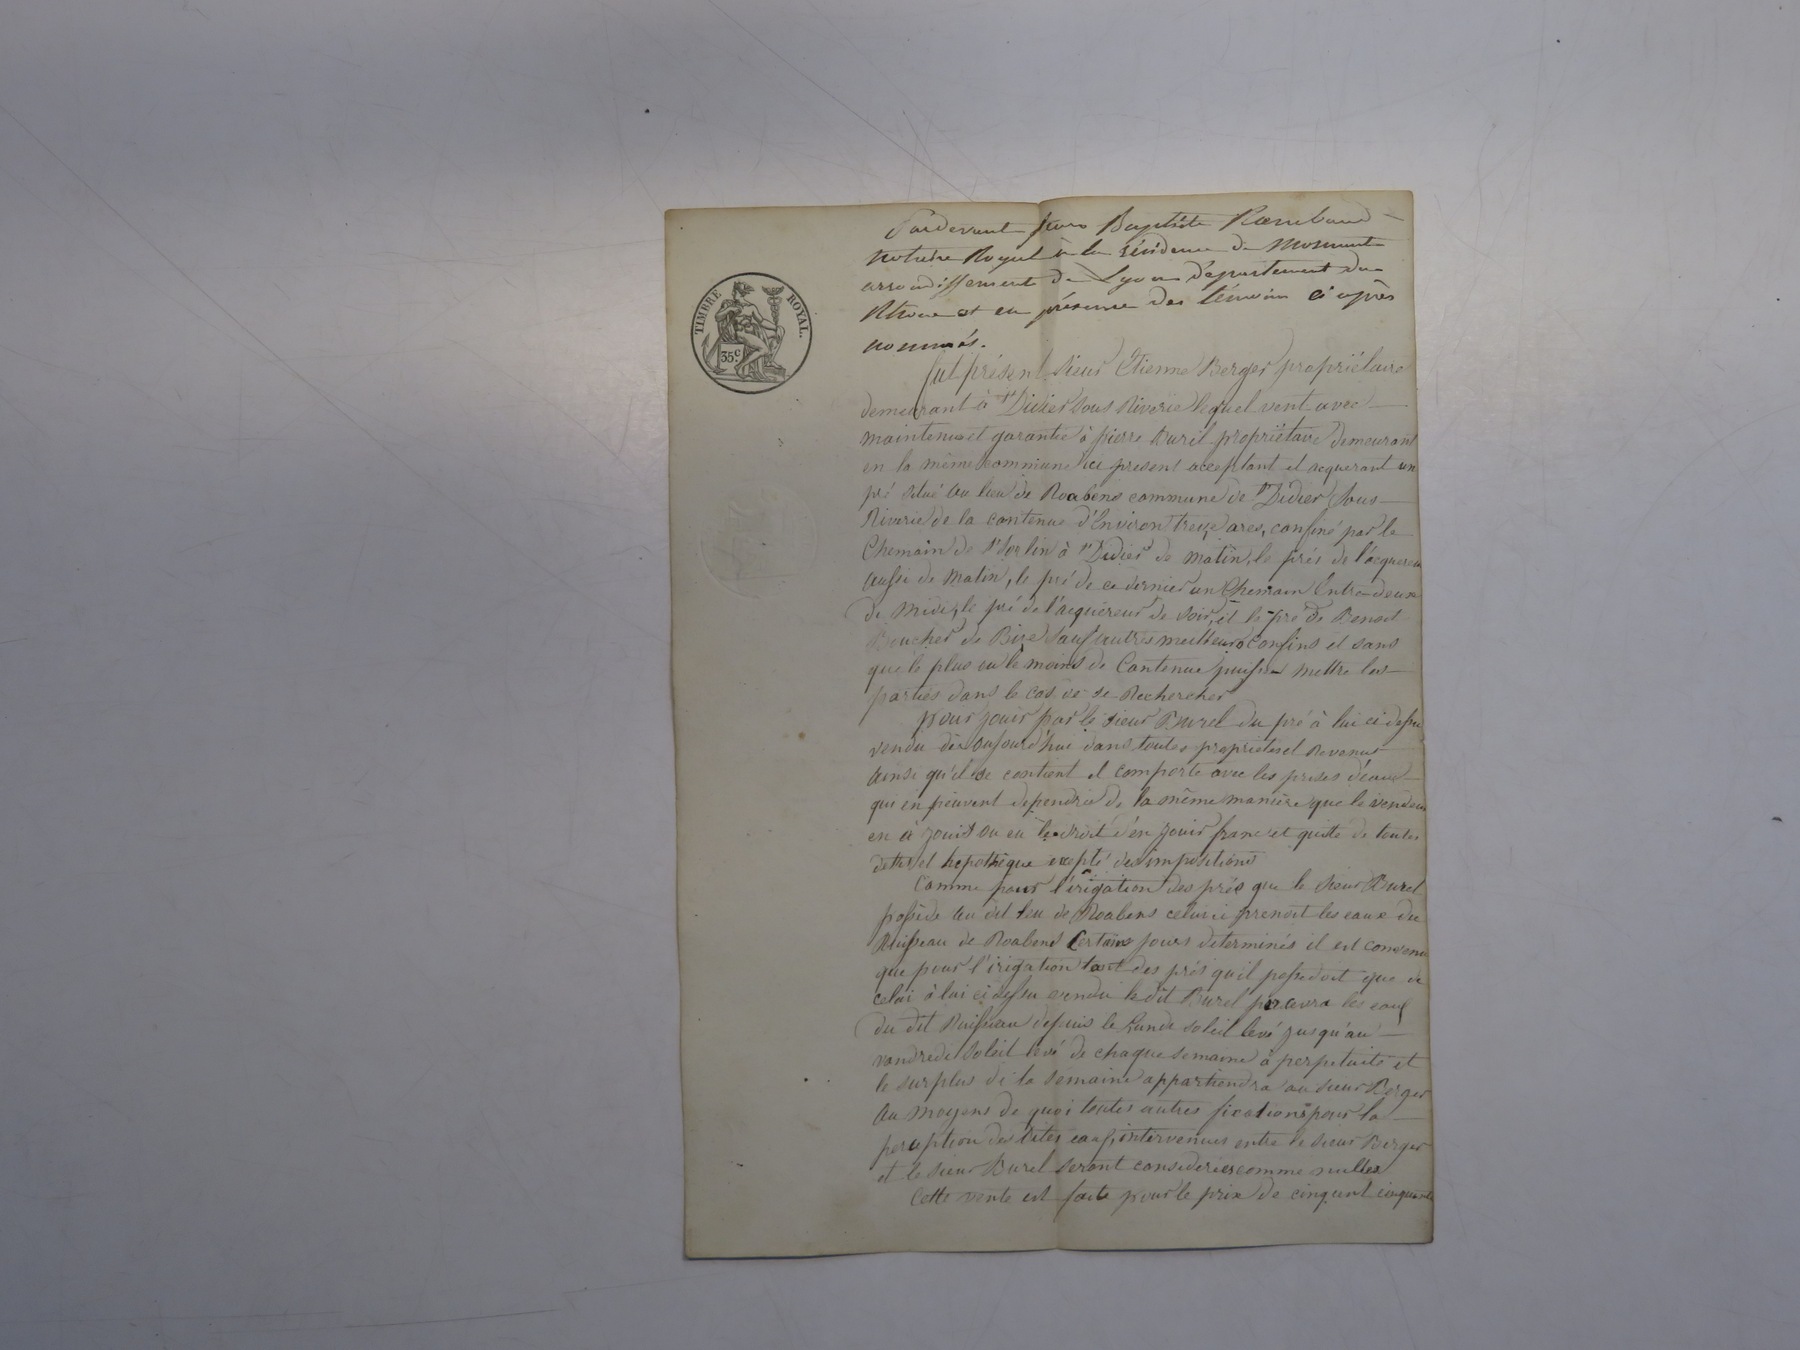 TIMBRE ROYAL.
35c.
Pardevant Jean Baptiste Rambaud
notaire Royal à la résidence de Mornant
arrondissement de Lyon département du
Rhone et en présence des témoins ci après
nommés.
fut présent sieur Etienne Berger propriétaire
demeurant à St Didier sous Riverie lequel vent avec
maintenue et garantie à pierre Burel propriétaire demeurant
en la même commune ici present acceptant et aquerant un
pré situé au lieu de Roabens commune de St Didier sous
Riverie de la contenue d'Environ treize ares, confiné par le
Chemain de St Sorlin à St Didier de matin, le prés de l'acquereur
aussi de matin, le pré de ce dernier un Chemain Entre deux
de midi, le pré de l'acquéreur de soir, et le pré de Benoit
Boucher de Bize sauf autres meilleurs confins et sans
que le plus ou le moins de Contenue puisse mettre les
parties dans le cas de se Rechercher
pour jouir par le sieur Burel du pré à lui ci dessu
vendu dès aujourd'hui dans toutes proprietes et Revenus
ainsi qu'il se contient et comporte avec les prises d'eaux
qui en peuvent dependre de la même manière que le vendeur
en à jouit ou eu le droit d'en jouir franc et quitte de toutes
dettes et hepothèque excepté des impositions
Comme pour l'irigation des prés que le sieur Burel
possède au dit lieu de Roabens celui ci prenoit les eaux du
Ruisseau de Roabens Certains jours determinés il est convenu
que pour l'irigation tant des prés qu'il possedoit que de
celui à lui ci dessu vendu le dit Burel prendra les eaux
du dit Ruisseau depuis le Lundi soleil levé jusqu'au
vandredi soleil levé de chaque semaine à perpetuité et
le surplus de la semaine appartiendra au sieur Berger
au moyens de quoi toutes autres fixations pour la
perception des dites eaux intervenues entre le sieur Berger
et le sieur Burel seront considerées comme nulles
Cette vente est faite pour le prix de cinq cent cinquante